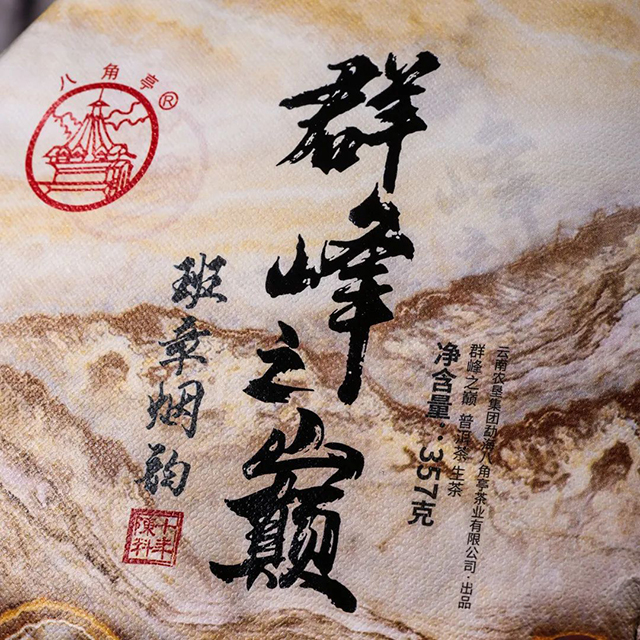 八角亭®
群峰之巅
班章烟韵
十年
陳料
净含量：357克
群峰之巅 普洱茶 生茶
云南农垦集团勐海八角亭茶业有限公司·出品